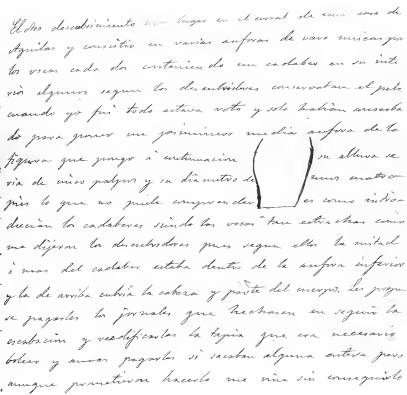 El otro descubrimiento tuvo lugar en el corral de una casa de
Aguilas y consistio en varias anforas de varo unicas por
las vocas cada dos conteniendo un cadaber en su inte
rior algunos segun los descubridores conservaban el pelo
cuando yo fui todo estava roto y solo habian conserba
do para poner un jasminero media anfora de la
figura que pongo á continuacion su altura se
ria de cinco palmos y su diametro de unos cuatro
pies lo que no pude comprender es como intro
ducian los cadaberes siendo las vocas tan estrechas como
me dijeron los descubridores pues segun ellos la mitad
ó mas del cadaber estaba dentro de la anfora inferior
y la de arriba cubria la cabeza y parte del cuerpo. Les propu
se pagarles los jornales que hechasen en seguir la
escabación y reedificarles la tapia que era necesario
bolcar y aunas pagarles si sacaban alguna entera pero
aunque prometieron hacerlo me vine sin conseguirlo